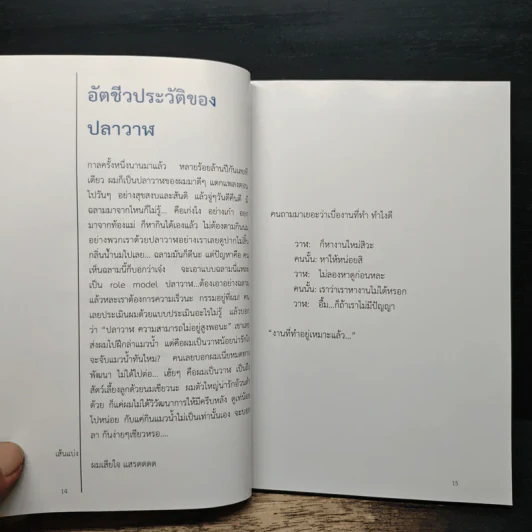 อัตชีวประวัติของ
ปลาวาฬ
กาลครั้งหนึ่งนานมาแล้ว หลายร้อยล้านปีกันเลยที
เดียว ผมก็เป็นปลาวาฬของผมมาดีๆ แดกแพลงตอน
ไปวันๆ อย่างสุขสงบและสันติ แล้วจู่ๆวันดีคืนดี
ฉลามมาจากไหนก็ไม่รู้... คือเก่งไง อย่างเก๋า ออก
มาจากท้องแม่ ก็หากินได้เองแล้ว ไม่ต้องตามกินนม
อย่างพวกเราด้วยปลาวาฬอย่างเราเลยดูปากไม่สิ้น
กลิ่นน้ำนมไปเลย... ฉลามมันก็ดีนะ แต่ปัญหาคือ คน
เห็นฉลามนี้ก็บอกว่าเจ๋ง จะเอาแบบฉลามนี่แหละ
เป็น role model ปลาวาฬ...ต้องเอาอย่างฉลาม
แล้วหละเราต้องการความเร็วนะ กรรมอยู่ที่ผม! คน
เลยประเมินผมด้วยแบบประเมินอะไรไม่รู้ แล้วบอก
ว่า “ปลาวาฬ ความสามารถไม่อยู่สูงพอนะ”
ส่งผมไปฝึกล่าแมวน้ำ แต่คือผมเป็นวาฬน้อยน่ารักไง
จะจับแมวน้ำทันไหม? คนเลยบอกผมเนี่ยหมดทาง
พัฒนา ไม่ได้ไปต่อ... เฮ้ยๆ คือผมเป็นวาฬ เป็น
สัตว์เลี้ยงลูกด้วยนมเชียวนะ ผมตัวใหญ่น่ารักอ้วนดำ
ด้วย ก็แค่ผมไม่ได้วิวัฒนาการให้มีครีบหลัง ดูเท่น้อย
ไปหน่อย กับแค่กินแมวน้ำไม่เป็นเท่านั้นเอง จะบอก
ลา กันง่ายๆเชียวหรอ....
ผมเสียใจ แสรดดดด
เส้นแบ่ง
14
คนถามมาเยอะว่าเบื่องานที่ทำ ทำไงดี
วาฬ: ก็หางานใหม่สิวะ
คนนั้น: หาให้หน่อยสิ
วาฬ: ไม่ลองหาดูก่อนหละ
คนนั้น: เราว่าเราหางานไม่ได้หรอก
วาฬ: อื้ม...ก็ถ้าเราไม่มีปัญญา
“งานที่ทำอยู่เหมาะแล้ว...”
15